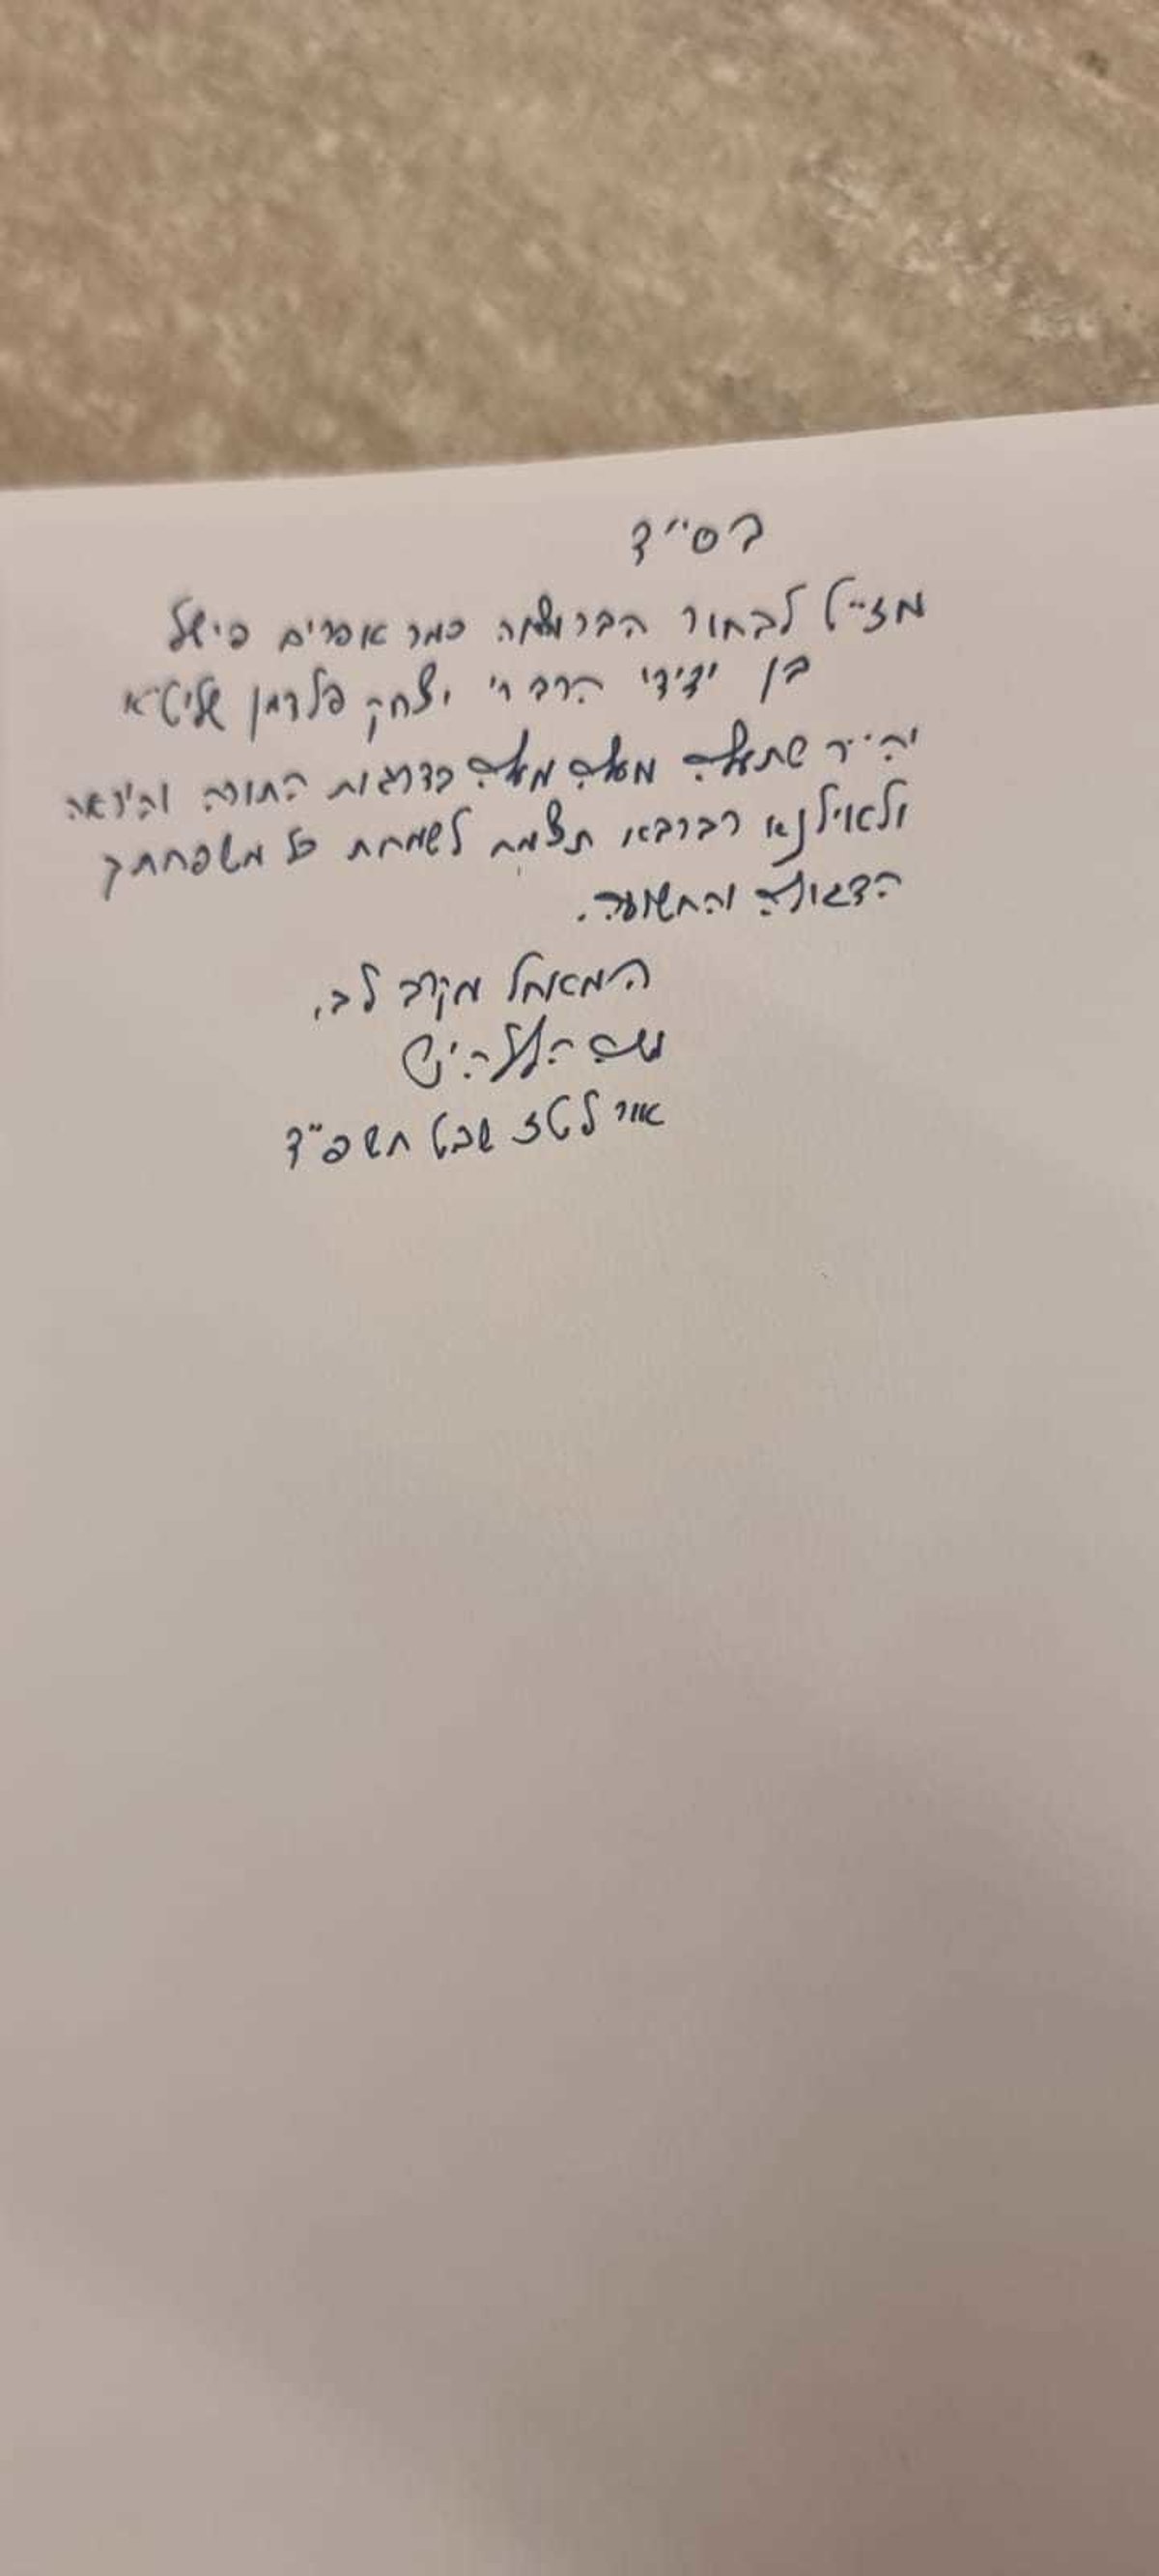 בס"ד
מז"ל לבחור הבר מצוה כמר אפרים פישל
בן ידידי הרב ר' יצחק פלדמן שליט"א
יה"ר שתעלה מעלה מעלה בדרגות התורה והיראה
ולאילנא רברבא תצמח לשמחת כל משפחתך
הדגולה והחשובה.
המאחל מקרב לב,
אור לטז שבט תשפ"ד